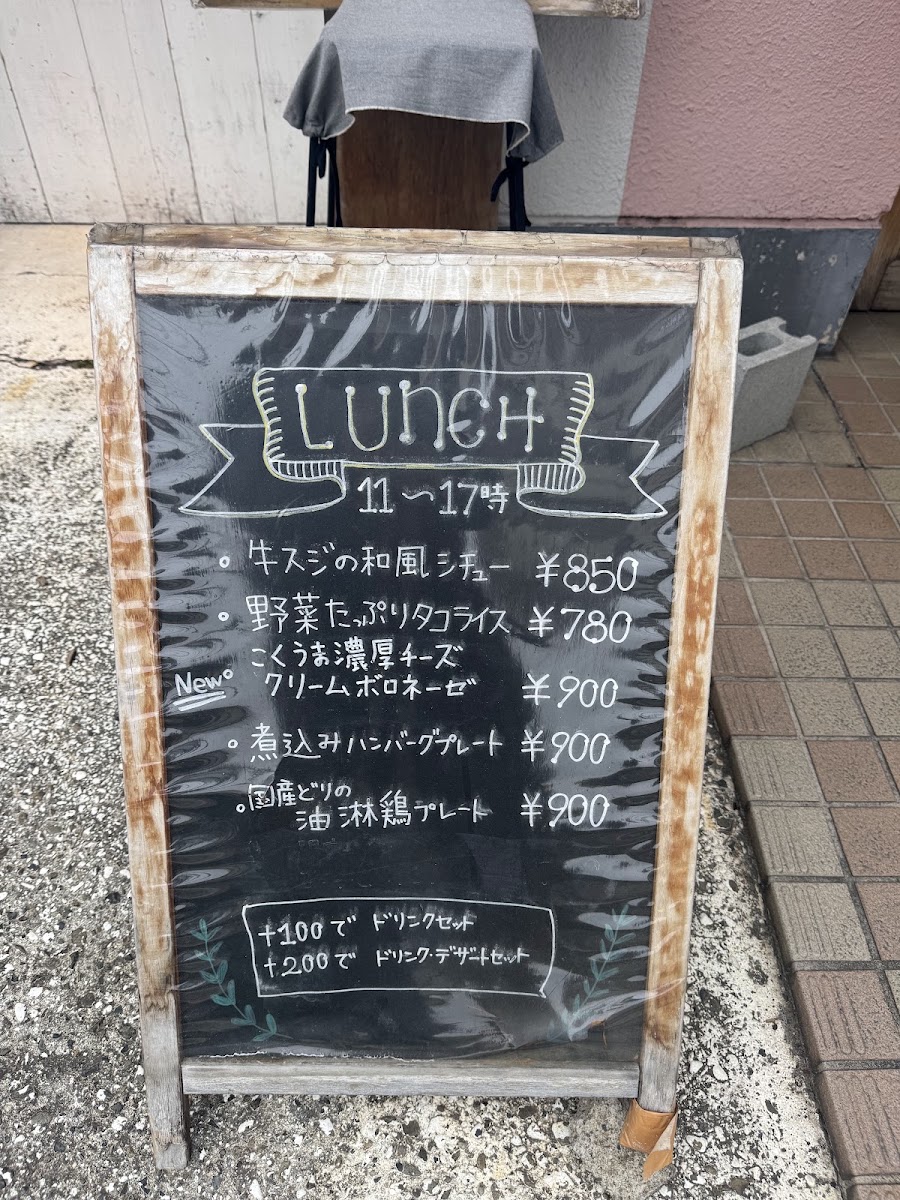 LUNCH
11〜17時
牛スジの和風シチュー ¥850
野菜たっぷりタコライス ¥780
こくうま濃厚チーズ
New クリームボロネーゼ ¥900
煮込みハンバーグプレート ¥900
国産どりの
油淋鶏プレート ¥900
+100で ドリンクセット
+200で ドリンク・デザートセット